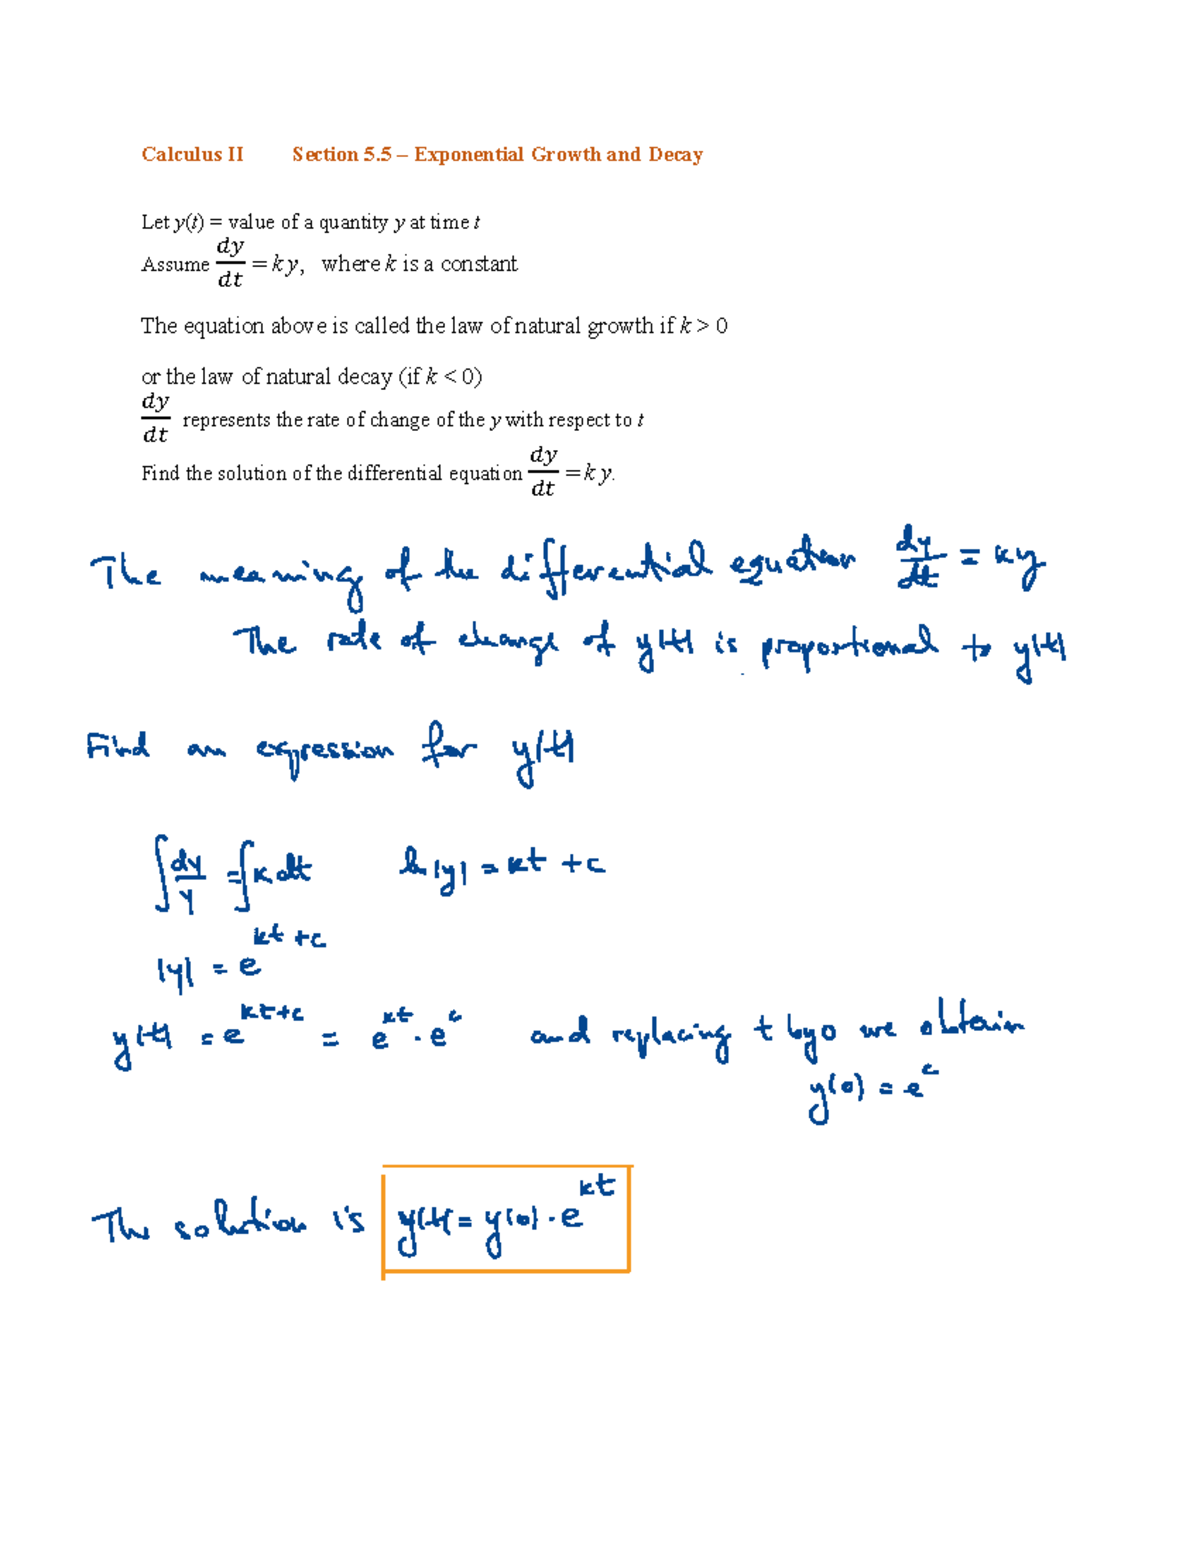 Calculus II Section 5.5 – Exponential Growth and Decay
Let y(t) = value of a quantity y at time t
Assume dy/dt = k y, where k is a constant
The equation above is called the law of natural growth if k > 0
or the law of natural decay (if k < 0)
dy/dt represents the rate of change of the y with respect to t
Find the solution of the differential equation dy/dt = k y.
The meaning of the differential equation dy/dt = ky
The rate of change of y(t) is proportional to y(t)
Find an expression for y(t)
∫ dy/y = ∫ k dt ln|y| = kt + c
|y| = e^(kt+c)
y(t) = e^(kt+c) = e^(kt) · e^c and replacing t by 0 we obtain
y(0) = e^c
The solution is y(t) = y(0) · e^(kt)